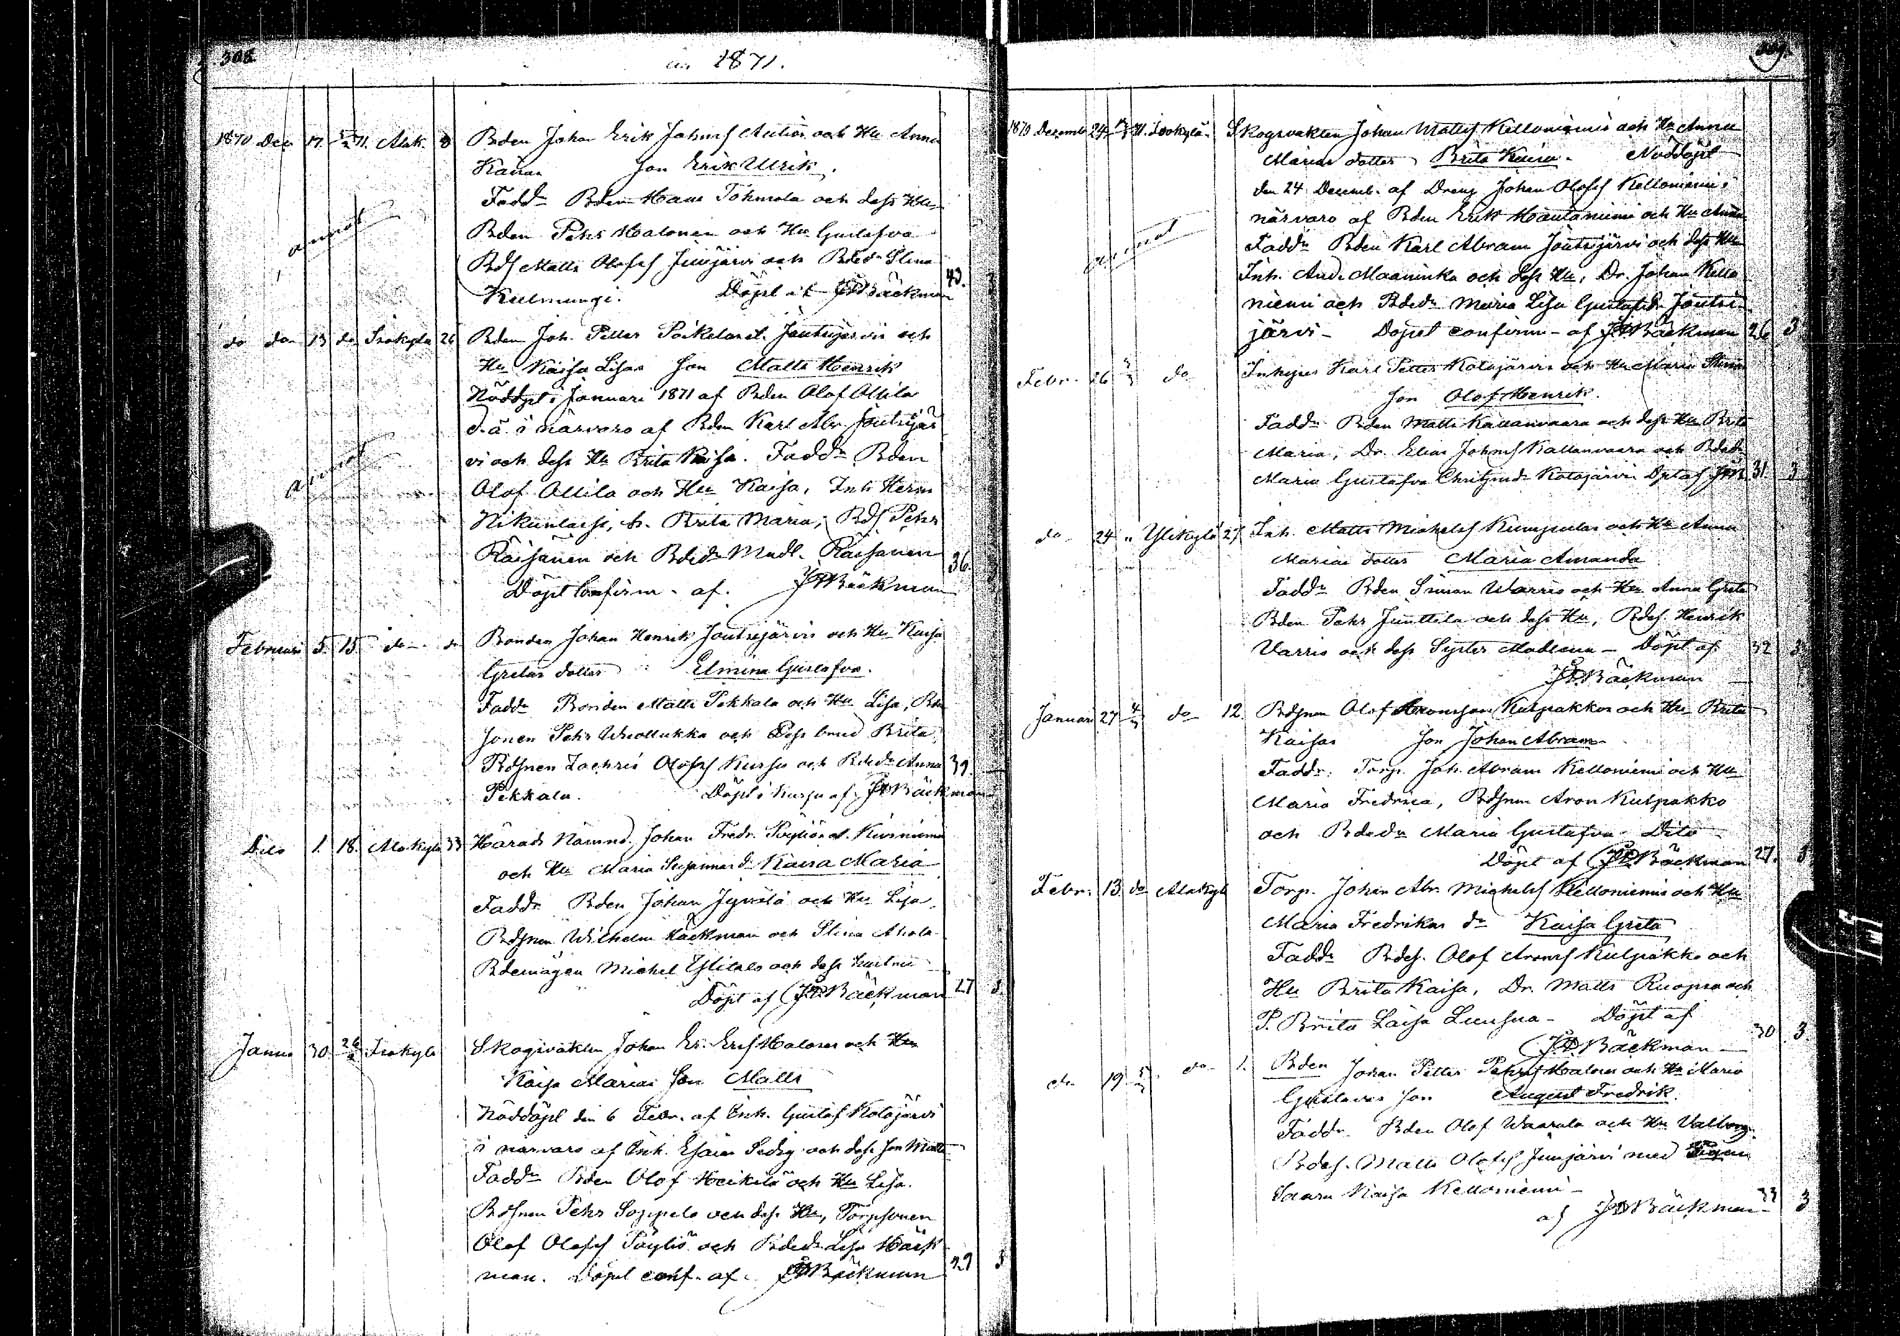 308.
1871.
1870 Dec 17. 5/2 71. Alak. 8 Bden Johan Erik Johans Autios och Hu Anna
Kaisas Son Erik Ulrik.
Faddr Bden Hans Töhmola och dess Hu
Bden Pehr Halonen och Hu Gustafva
Bds Matts Olofss Jumjärvi och Bdedr Stina
Kulmungi. Döpt af JDBäckman 43.
annot
do do 13 do Isokylä 26 Bden Joh. Petter Poikelas l. Joutsijärvis och
Hu Kaisa Lisas Son Matts Henrik
Nöddöpt i Januari 1871 af Bden Olof Ollila
d.ä. i närvaro af Bden Karl Abr. Joutsijär
vi och dess Hu Brita Kajsa. Faddr Bden
Olof Ollila och Hu Kaisa, Inh Herm
h. Brita Maria, Bds Pehr
Räisänen och Bdedr Madl. Räisänen 36.
Döpt Confirm. af JDBäckman
annot
Februari 5. 15 do do Bonden Johan Henrik Joutsijärvis och Hu Kaisa
Gretas dotter Elmina Gustafva.
Faddr Bonden Matts Pekkala och Hu Lisa, Bde
sonen Pehr Wuollukka och Dess brud Brita
Bdsnen Zachris Olofss Kursu och Bdedr Anna 39.
Pekkala. Döpt i Kursu af JDBäckman
Dito 1. 18. Alakylä 33 Härads Nämnd. Johan Fredr. Pöyliös l. Kiviniemi
och Hu Maria Susannas d. Kaisa Maria
Faddr Bden Johan Jyväilä och Hu Lisa
Bdsnen Wilhelm Häckman och Stina Ahola
Bdemågen Michel Ylitalo och dess hustru
Döpt af JDBäckman 27 3.
Januar 30. 26/2 Isokylä Skogsvakten Johan Er. Ers Halonen och Hu
Kaisa Marias Son Matts
Nöddöpt den 6 Febr. af Inh. Gustaf Kotojärvi
i närvaro af Inh. Esaias Sedig och dess Son Matts
Faddr Bden Olof Heikilä och Hu Lisa.
Bdsnen Pehr Soppela och dess Hu, Torpsonen
Olof Olofss Pöyliö och Bdedr Lisa Häck
man. Döpt conf. af JDBäckman 29 3
309.
1870 Decemb 24 71. Isokylä. Skogsvakten Johan Mattss Kelloniemis och Hu Anna
Marias dotter Brita Kaisa. Nöddöpt
den 24 Decemb. af Dreng Johan Olofss Kelloniemi i
närvaro af Bden Erik Hautaniemi och Hu Anna
Faddr Bden Karl Abram Joutsijärvi och dess Hu
Inh. And. Maaninka och dess Hu, Dr. Johan Kello
niemi och Bdedr Maria Lisa Gustafsdr Joutsi
järvi - Döpt confirm - af JDBäckman 26 3
annot
Febr. 26 5/3 do Inhyses Karl Petter Kotojärvis och Hu Maria Stinas
Son Olof Henrik.
Faddr Bden Matts Kallanvaara och dess Hu Brita
Maria, Dr. Elias Johanss Kallanvaara och Bdedr
Maria Gustafva Christjansdr Kotojärvi Dpt af JDB 31 3
do 24 " Ylikylä 27 Inh. Matts Michelss Kumpulas och Hu Anna
Marias dotter Maria Amanda
Faddr Bden Simon Warrio och Hu Anna Greta
Bden Pehr Junttila och dess Hu, Bdes. Henrik
Varrio och dess Syster Madlena - Döpt af 32 3
JDBäckman
Januari 27 4/3 do 12 Bdsnen Olof Aronsson Kulpakkos och Hu Brita
Kaisas Son Johan Abram.
Faddr. Torp. Joh. Abram Kelloniemi och Hu
Maria Fredrica, Bdsnen Aron Kulpakko
och Bdedr Maria Gustafva Dito
Döpt af JDBäckman 27. 3
Febr. 13 do Alakylä Torp. Johan Abr. Michelss Kelloniemis och Hu
Maria Fredrikas dr Kaisa Greta
Faddr Bdes. Olof Aronss Kulpakko och
Hu Brita Kaisa, Dr. Matts Ruopsa och
P. Brita Kaisa Luusua - Döpt af 30 3.
JDBäckman
do 19 5/3 do 1. Bden Johan Petter Pehrss Halonens och Hu Maria
Gustavas Son August Fredrik.
Faddr Bden Olof Waarala och Hu Valborg.
Bdes. Matts Olofss Jumjärvi med
Saara Kaisa Kelloniemi -
af JDBäckman 33 3